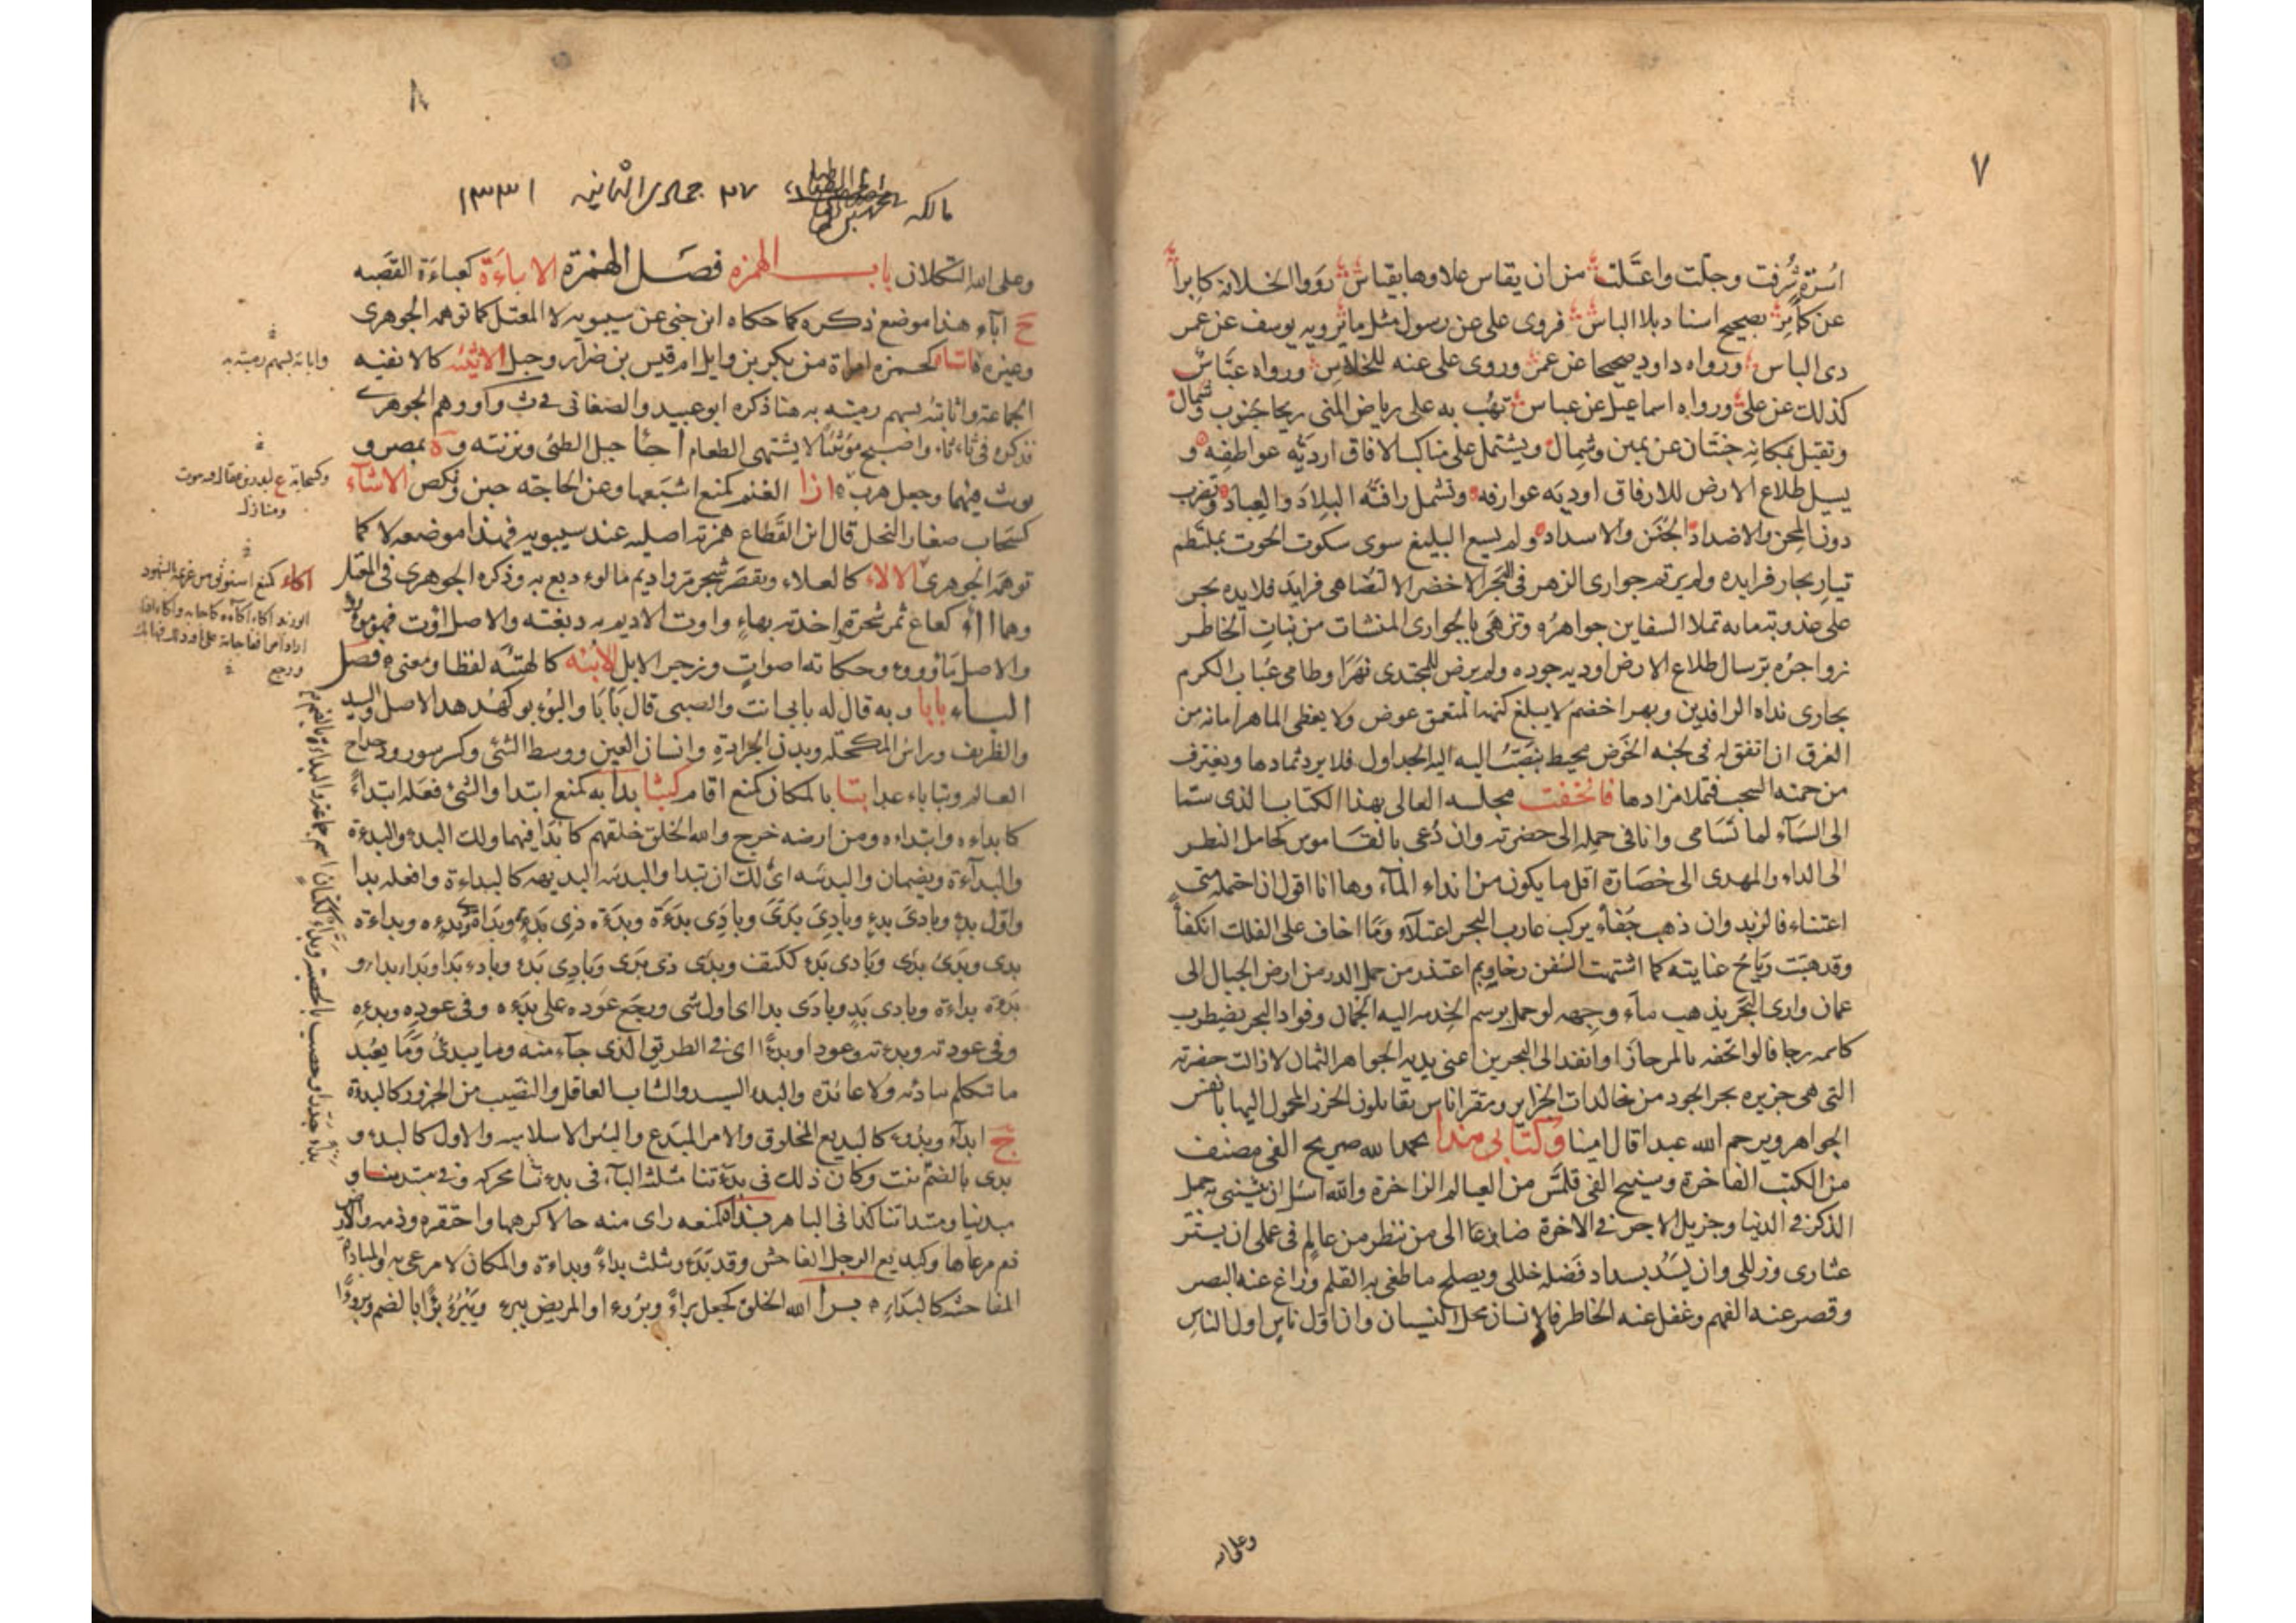 ٧
اسرة شرفت وجلت واعتلت من ان يقاس علاوها بقياس رووا الخلافة كابرا
عن كابر بصحيح اسناد بلا الباس فروى على عن رسول مثل ما يرويه يوسف عن عمر
ذى الباس ورواه داود صحيحا عن عمر وروى على عنه للخلاس ورواه عباس
كذلك عن على ورواه اسماعيل عن عباس تهب به على رياض المنى ريحا جنوب وشمال
وتقيل بمكانه جنتان عن يمين وشمال ويشتمل على مناكب الافاق اردية عواطفه و
يسيل طلاع الارض للارفاق اودية عوارفه وتشمل رافته البلاد والعباد وتضرب
دون المحن والاضداد الجنن والاسداد ولم يسع البليغ سوى سكوت الحوت بملتطم
تيار بحار فرايده ولم يرتم جوارى الزهر فى البحر الاخضر الا لتضاهى فرايد قلايده بحر
على عذوبة مايه تملا السفاين جواهره وتزهى بالجوارى المنشات من بنات الخاطر
زواجره برسال طلاع الارض اودية جوده ولم يرض للمجتدى نهرا وطامى عباب الكرم
يجارى نداه الرافدين وبهرا خضم لا يبلغ كنهه المتعمق عوض ولا يعطى الماهر امانه من
الغرق ان اتفق له فى لجته الخوض محيط تنصب اليه الجداول فلا يرد ثمادها ويغترف
من جمته السحب فتملا مزادها فاتحفت مجلسه العالى بهذا الكتاب الذى سما
الى السماء لما تسامى وانا فى حمله الى حضرته وان دعى بالقاموس كحامل القطر
الى الداماء والمهدى الى خضارة اقل ما يكون من انداء الماء وها انا اقول ان احتمله منى
اعتناء فالزبد وان ذهب جفاء يركب غارب البحر اعتلاء وما اخاف على الفلك انكفاء
وقد هبت رياح عنايته كما اشتهت السفن رخاء وبم اعتذر من حمل الدر من ارض الجبال الى
عمان وارى البحر يذهب ماء وجهه لو حمل برسم الخدمة اليه الجمان وفواد البحر يضطرب
كاسمه رجافا لو اتحفه بالمرجان او انفذ الى البحرين اعنى يديه الجواهر الثمان لا زالت حضرته
التى هى جزيرة بحر الجود من خالدات الجزاير ومقر اناس يقابلون الخرز المحمول اليها بانفس
الجواهر ويرحم الله عبدا قال امينا وكتابى هذا بحمد الله صريح الفى مصنف
من الكتب الفاخرة وسنيح الفى قلمس من العيالم الزاخرة والله اسئل ان يثيبنى به جميل
الذكر فى الدنيا وجزيل الاجر فى الاخرة ضارعا الى من ينظر من عالم فى عملى ان يستر
عثارى وزللى وان يسد بسداد فضله خللى ويصلح ما طغى به القلم وزاغ عنه البصر
وقصر عنه الفهم وغفل عنه الخاطر فالانسان محل النسيان وان اول ناس اول الناس
وعلى الله
٨
مالكه ٢٧ جمادى الثانيه ١٣٣١
وعلى الله التكلان باب الهمزه فصل الهمزة الاباءة كعباءة القصبه
ج اباء هذا موضع ذكره كما حكاه ابن جنى عن سيبويه لا المعتل كما توهمه الجوهرى
وغيره اتاه كحمزه امراة من بكر بن وايل ام قيس بن ضرار وجبل الاثئيه كالاثفيه
الجماعة واثاته بسهم رميته به هنا ذكره ابو عبيد والصغانى فى ث و أ ووهم الجوهرى
فذكره فى ثاثاء واصبح موتثئا لا يشتهى الطعام اجأ جبل لطئ وبزنته و ة بمصر و
يونث فيهما وجعل هرب ازا الغنم كمنع اشبعها وعن الحاجة جبن ونكص الاشاء
كسحاب صغار النخل قال ابن القطاع همزته اصلية عند سيبويه فهذا موضعه لا كما
توهم الجوهرى الالاء كالعلاء ويقصر شجر مر واديم مالوء دبغ به وذكره الجوهرى فى المعتل
وهما ااء كعاع ثمر شجرة واحدته بهاء واوت الاديم به دبغته والاصل اؤت فهو مووء
والاصل مأووء وحكاية اصوات وزجر الابل الأيئة كالهيئة لفظا ومعنى فصل
الباء بابا وبه قال له بابى انت والصبى قال بابا والبوبو كهدهد الاصل والسيد
والظريف وراس المكحله وبدن الجرادة وانسان العين ووسط الشئ وكسرسور ودحداح
العالم وتباباء عدا بتا بالمكان كمنع اقام كبثا بدا به كمنع ابتدا والشئ فعله ابتداء
كابداءه وابتداءه ومن ارضه خرج والله الخلق خلقهم كابدا فيهما ولك البدء والبدءة
والبداءة ويضمان والبديئه اى لك ان تبدا والبديئه البديهه كالبداءة وافعله بدا
واول بدء وبادى بدء وبادى بدى وبادى بدءة وبدءة ذى بدء وبداة بدءه وبداءة
بدى وبدى بدى وبادى بدء ككتف وبدى ذى بدى وبادى بدء وبادء بدا وبدا بداء و
بدوة بداءة وبادى بد وبادى بدا اى اول شى ورجع عوده على بدءه وفى عوده وبدءه
وفى عودته وبدءته وعودا وبدءا اى فى الطريق الذى جاء منه وما يبدئ وما يعيد
ما تتكلم ببادئه ولا عائدة والبدء السيد والشاب العاقل والنصيب من الجزور كالبدءة
ج ابداء وبدوء كالبديع المخلوق والامر المبدع والبئر الاسلاميه والاول كالبدء و
بدى بالضم
فذم مرعاها وكبديع الرجل الفاحش وقد بدء وثلث بداء وبداءة والمكان لا مرعى به والمباداة
المفاحشه كالبداء برأ الله الخلق كجعل براء وبروءا والمريض يبرء ويبرؤ برا بالضم وبروءا
واباته بسهم رميته به
اكاء كمنع استوثق من غريمه بالشهود